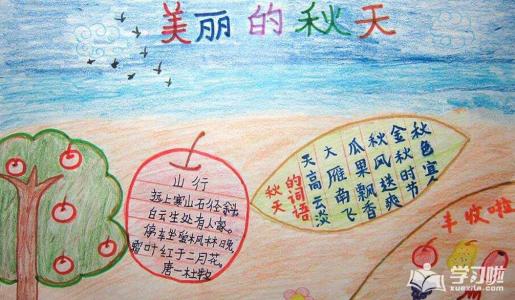 美丽的秋天
山行
远上寒山石径斜,
白云生处有人家。
停车坐爱枫林晚,
霜叶红于二月花。
唐—杜牧
秋天
的词语
天高云淡
大雁南飞
瓜果飘香
秋风送爽
金秋时节
秋色宜人
丰收啦
学习啦
xuexila.com